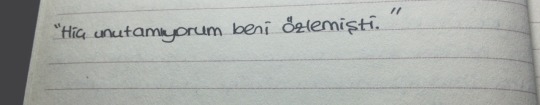 "Hiç unutamıyorum beni özlemişti."